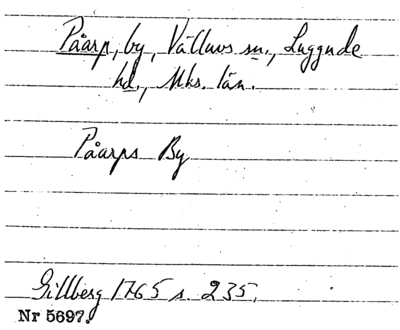 Påarp, by, Välluvs sn., Luggude
hd., Mhs. län.
Påarps By
Gillberg 1765 s. 235.
Nr 5697.